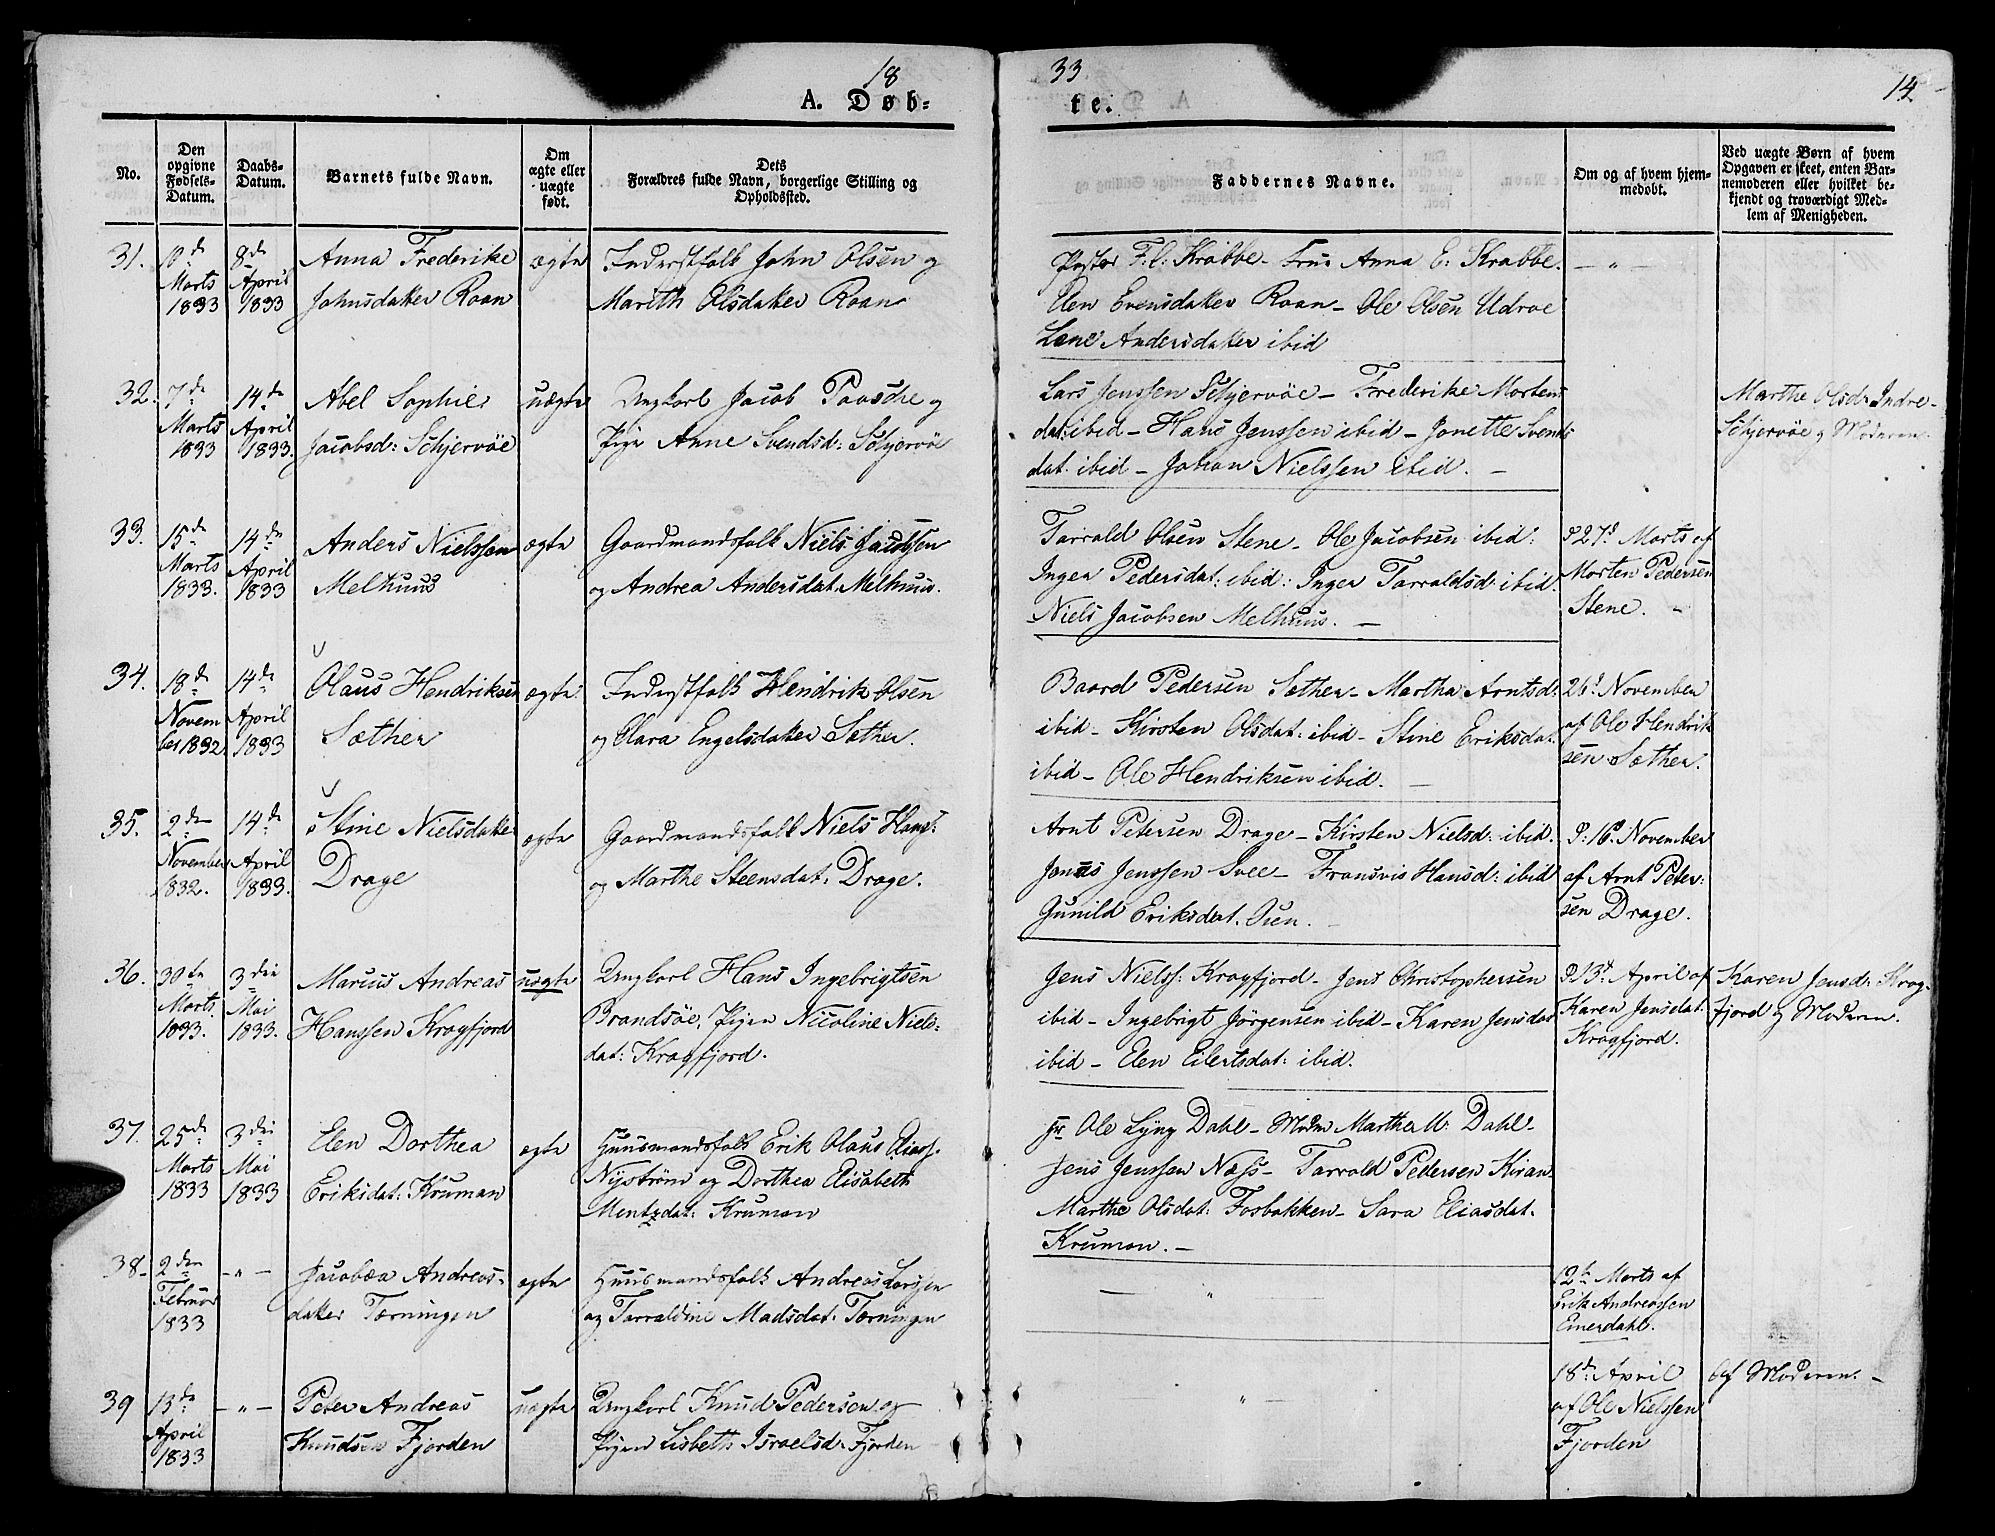 18
33
14.
A. Døb-
te.
No.
Den
opgivne
Fødsels-
Datum.
Daabs-
Datum.
Barnets fulde Navn.
Om
ægte eller
uægte
født.
Dets
Forældres fulde Navn, borgerlige Stilling og
Opholdssted.
Faddernes Navne.
Om og af hvem hjem-
medøbt.
Ved uægte Børn af hvem
Opgaven er skeet, enten Bar-
nemoderen eller hvilket be-
kjendt og troværdigt Med-
lem af Menigheden.
31.
10de
Marts
1833
8de
April
1833
Anna Frederike
Johnsdatter Roan
ægte
Inderstfolk John Olsen og
Mareth Olsdatter Roan
Pastor F. C: Krabbe - Frue Anna E: Krabbe.
Elen Evensdatter Roan - Ole Olsen Udroe
Lene Andersdatter ibid
- " -
32.
7de
Marts
1833
14de
April
1833.
Abel Sophie
Jacobsd: Schjervöe
uægte
Ungkarl Jacob Paasche og
Pige Anne Svendsd: Schjervöe
Lars Jenssen Schjervöe - Frederike Mortens
dat: ibid - Hans Jenssen ibid - Jonette Svends
dat. ibid - Johan Nielssen ibid. -
Marthe Olsd: Indre-
Schjervöe og Moderen.
33.
15de
Marts
1833.
14de
April
1833
Anders Nielssen
Melhuus
ægte
Gaardmandsfolk Niels Jacobsen
og Andrea Andersdat. Melhuus.
Tarrald Olsen Stene - Ole Jacobsen ibid:
Inger Pedersdat: ibid: Inger Tarraldsd: ibid.
Niels Jacobsen Melhuus. -
d 27d Marts af
Morten Pedersen
Stene.
34.
18de
Novem
ber 1832
14de
April
1833
Olaus Hendriksen
Sæther
ægte
Inderstfolk Hendrik Olsen
og Clara Engelsdatter Sæther.
Baard Pedersen Sæther - Martha Arntsd:
ibid - Kirsten Olsdat: ibid - Stine Eriksdat:
ibid - Ole Hendriksen ibid. -
26d November
af Ole Hendrik
sen Sæther.
35.
2den
November
1832.
14de
April
1833.
Stine Nielsdatter
Drage
ægte
Gaardmandsfolk Niels Hans:
og Marthe Steensdat. Drage.
Arnt Petersen Drage - Kirsten Nielsd: ibid.
Jens Jenssen Svee - Fransvis Hansd: ibid
Gunild Eriksdat.
d: 16d November
af Arnt Peter:
sen Drage.
36.
30te
Marts
1833.
3die
Mai
1833.
Marius Andreas
Hanssen Kragfjord
uægte
Ungkarl Hans Ingebrigtsen
Brandsöe, Pigen Nicoline Niels-
dat: Kragfjord.
Jens Nielss: Kragfjord - Jens Christophersen
ibid - Ingebrigt Jörgensen ibid - Karen Jensdat
ibid - Elen Eilertsdat: ibid.
d 13d April af
Karen Jensdat.
Kragfjord.
Karen Jensd: Krag-
fjord og Moderen.
37.
25de
Marts
1833
3die
Mai
1833
Elen Dorthea
Eriksdat: Kruman
ægte
Huusmandsfolk Erik Olaus Eliass.
Nyström og Dorthea Elisabeth
Mentzdat: Kruman
Hr Ole Lyng Dahl - Mdm Martha M: Dahl -
Jens Jenssen Næss - Tarrald Pedersen Kiran
Marthe Olsdat: Fosbakken - Sara Eliasdat.
Kruman. -
38-
2den
Februar
1833
- " -
Jacobæa Andreas-
datter Tærningen
ægte
Huusmandsfolk Andreas Larssen
og Tarraldine Madsdat: Tærningen
- "
12te Marts af
Erik Andreassen
Einerdahl.
39
13de
April
1833
- " -
Peter Andreas
Knudsen Fjorden
uægte
Ungkarl Knud Pedersen og
Pigen Lisbeth Israelsd: Fjorden
" -
18de April
af Ole Nielssen
Fjorden
af Moderen. -